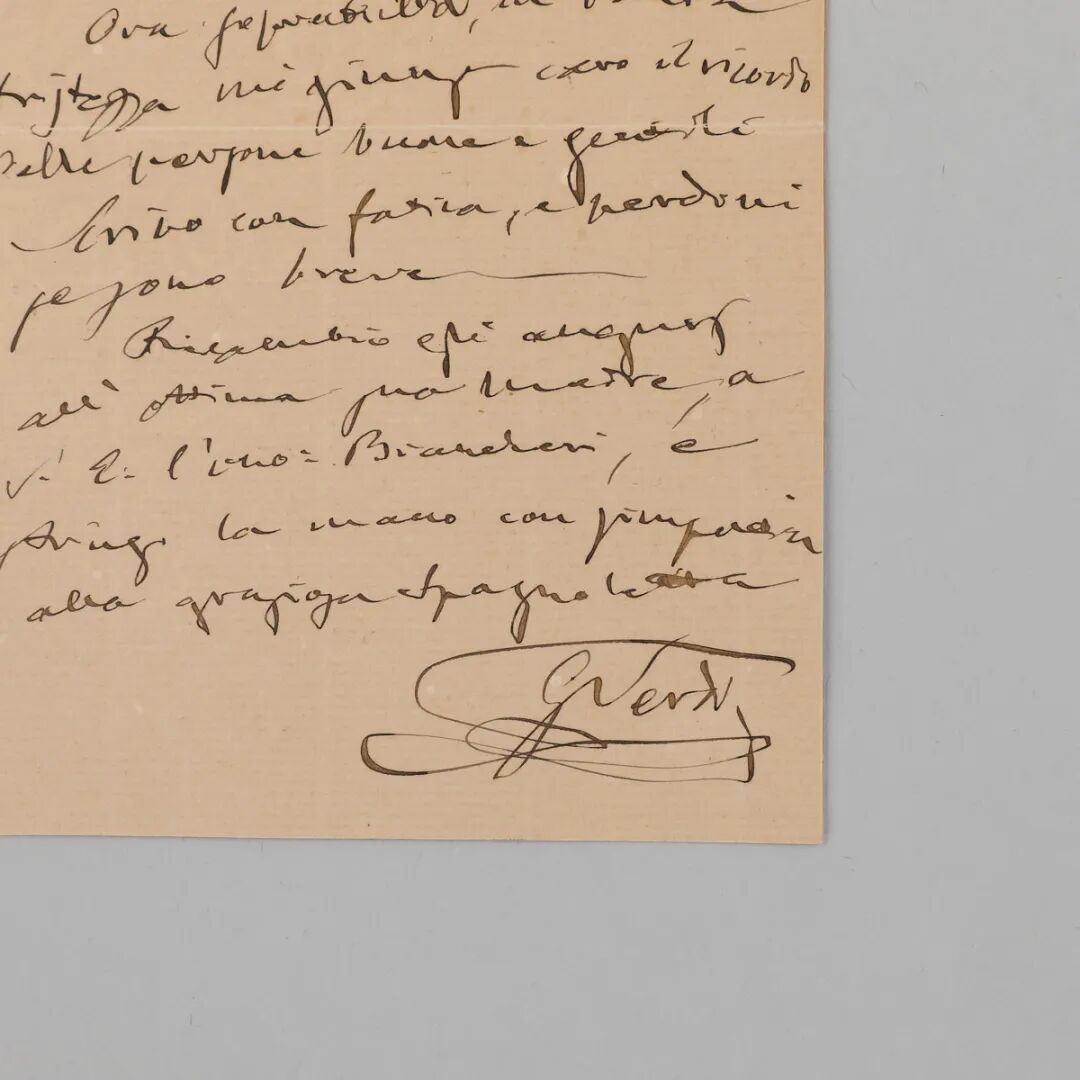 Ora
tristezza mi giunge caro il ricordo
delle persone buone e gentili
Scrivo con fatica, e perdoni
se sono breve
Ricambio gli augurj
all' ottima sua madre, a
S. E. l'ono: Biancheri, e
stringo la mano con simpatia
alla graziosa Spagnoletta
GVerdi